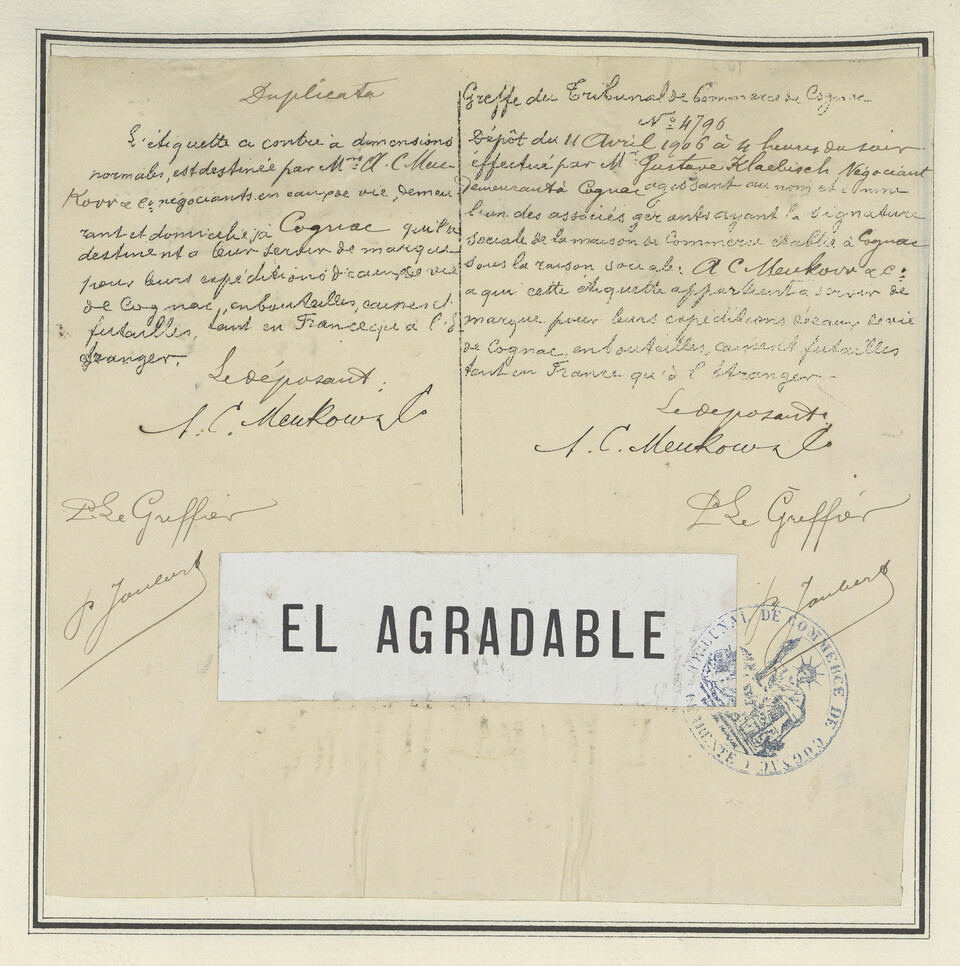 Duplicata
L'étiquette ci contre à dimensions
normales, est destinée par Mrs A. C. Meu-
Kow & Co négociants en eaux de vie, demeu
rant et domiciliés à Cognac qui la
destinent à leur servir de marque
pour leurs expéditions d'eaux de vie
de Cognac, en bouteilles, caisses et
futailles, tant en France qu'à l'é
tranger.
Le déposant:
A. C. Meukow & Co
Pr Le Greffier
P Joubert
Greffe du Tribunal de Commerce de Cognac
No 4796
Dépôt du 11 Avril 1906 à 4 heures du soir
effectué par Mr Gustave Klaebisch, Négociant
demeurant à Cognac agissant au nom et comme
l'un des associés gérants ayant la signature
sociale de la maison de Commerce établie à Cognac
sous la raison sociale: A C Meukow & Co
à qui cette étiquette appartient à servir de
marque pour leurs expéditions d'eaux de vie
de Cognac, en bouteilles, caisses et futailles
tant en France qu'à l'étranger.
Le déposant:
A. C. Meukow & Co
Pr Le Greffier
P Joubert
EL AGRADABLE
TRIBUNAL DE COMMERCE DE COGNAC (CHARENTE)